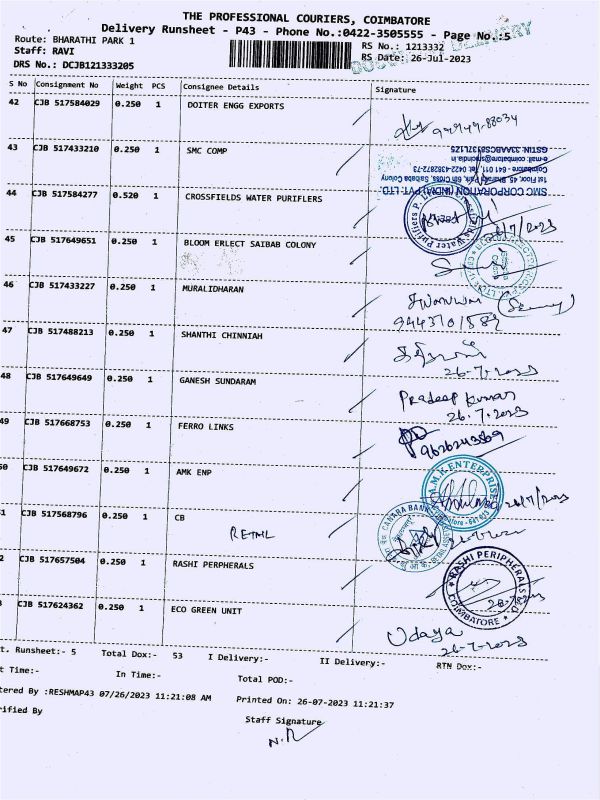 THE PROFESSIONAL COURIERS, COIMBATORE
Delivery Runsheet - P43 - Phone No.:0422-3505555 - Page No.:5
Route: BHARATHI PARK 1
RS No.: 1213332
Staff: RAVI
RS Date: 26-Jul-2023
DRS No.: DCJB121333205
DELIVERY
S No Consignment No Weight PCS Consignee Details Signature
42 CJB 517584029 0.250 1 DOITER ENGG EXPORTS
43 CJB 517433210 0.250 1 SMC COMP
SMC CORPORATION (INDIA) PVT. LTD.
1st Floor, 45, Bharathi Park, 6th Cross, Saibaba Colony
Coimbatore - 641 011. Tel: 0422-4382872-73
44 CJB 517584277 0.520 1 CROSSFIELDS WATER PURIFLERS
45 CJB 517649651 0.250 1 BLOOM ERLECT SAIBAB COLONY
46 CJB 517433227 0.250 1 MURALIDHARAN
47 CJB 517488213 0.250 1 SHANTHI CHINNIAH
26-7-2023
48 CJB 517649649 0.250 1 GANESH SUNDARAM
Pradeep Kumar
26.7.2023
49 CJB 517668753 0.250 1 FERRO LINKS
9626243869
50 CJB 517649672 0.250 1 AMK ENP
A.M.K ENTERPRISES
26/7/2023
51 CJB 517568796 0.250 1 CB
RETAIL
CANARA BANK
2 CJB 517657504 0.250 1 RASHI PERPHERALS
RASHI PERIPHERALS
COIMBATORE
CJB 517624362 0.250 1 ECO GREEN UNIT
Udaya
26-7-2023
t. Runsheet:- 5 Total Dox:- 53 I Delivery:- II Delivery:- RTN Dox:-
t Time:- In Time:- Total POD:-
tered By :RESHMAP43 07/26/2023 11:21:08 AM Printed On: 26-07-2023 11:21:37
rified By Staff Signature